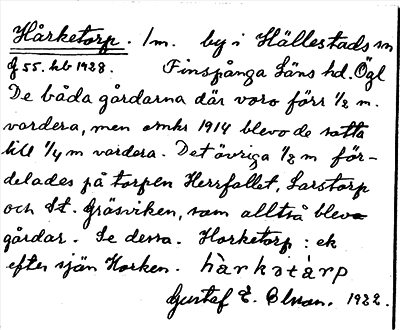 Hårketorp. 1m. by i Hällestads sn
J 55. hb 1928. Finspånga Läns hd. Ögl
De båda gårdarna där voro förr 1/2 m.
vardera, men omkr 1914 blevo de satta
till 1/4 m vardera. Det övriga 1/2 m för-
delades på torpen Herrfallet, Larstorp
och St. Gräsviken, som alltså blevo
gårdar. Se dessa. Horketorp: ek
efter sjön Horken.
Gustaf E. Olsson. 1922.